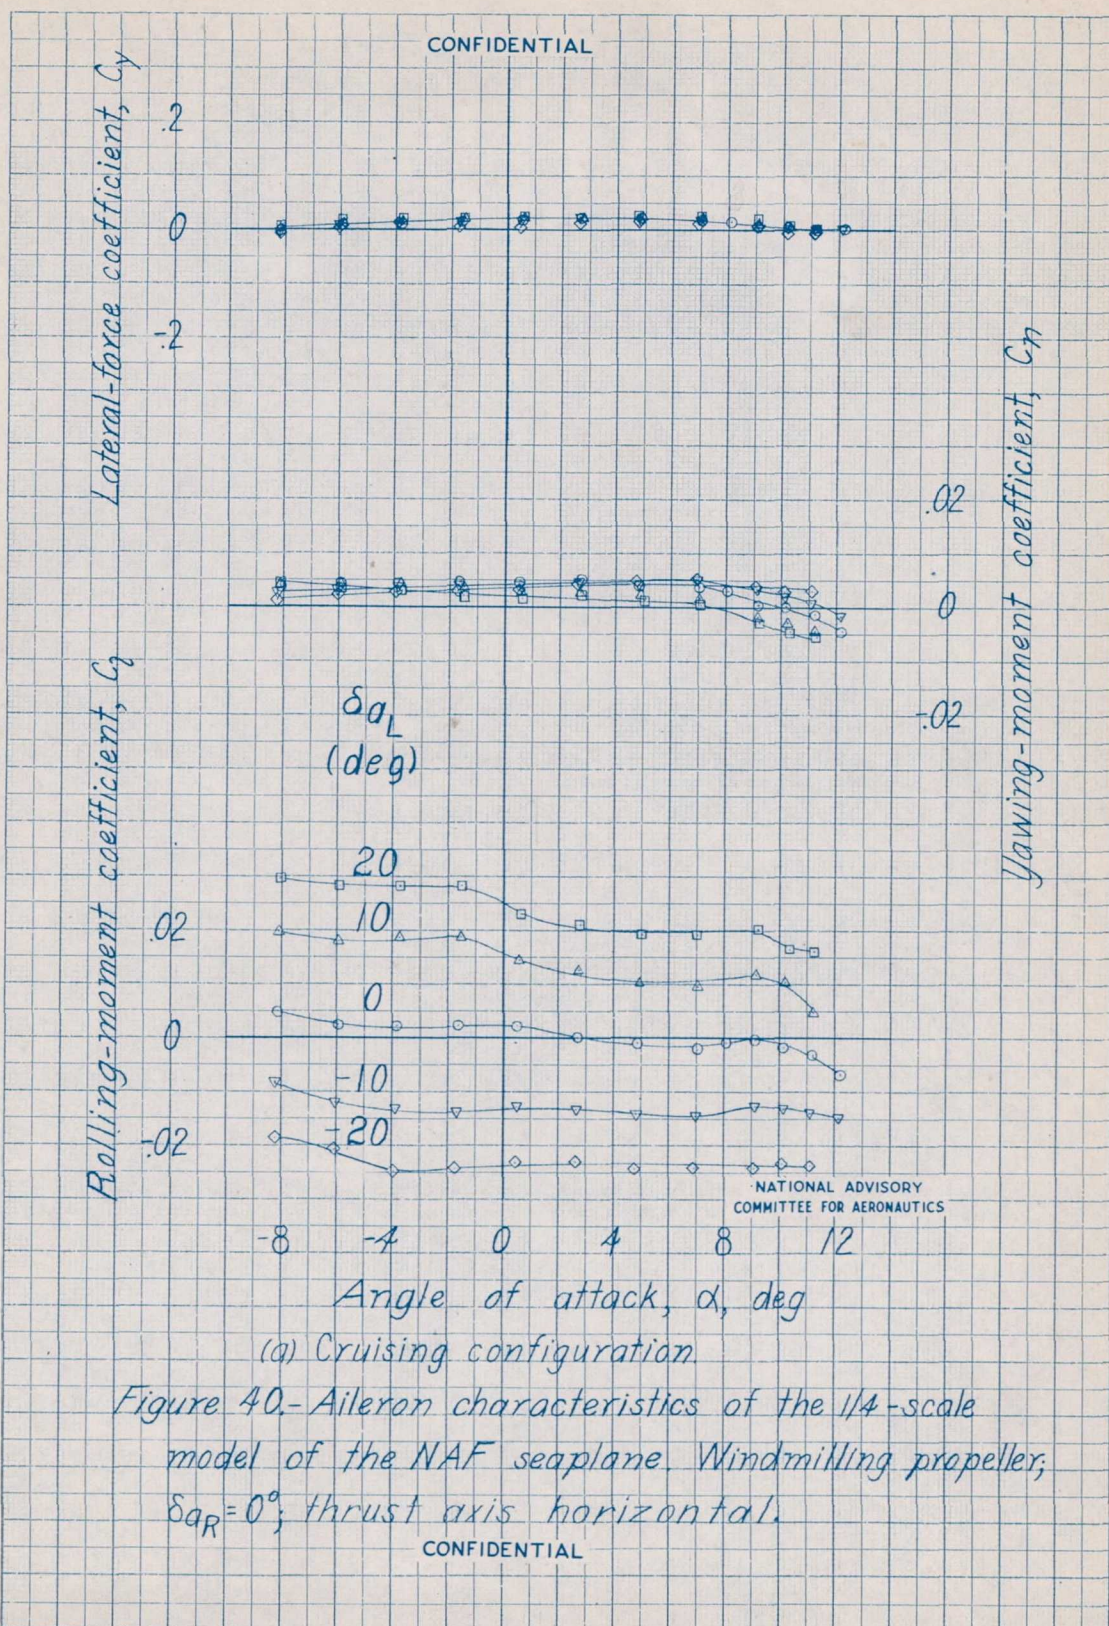 CONFIDENTIAL
Lateral-force coefficient, Cy
.2
0
-.2
Yawing-moment coefficient, Cn
.02
0
-.02
Rolling-moment coefficient, Cl
δaL
(deg)
20
10
0
-10
-20
.02
0
-.02
NATIONAL ADVISORY
COMMITTEE FOR AERONAUTICS
-8 -4 0 4 8 12
Angle of attack, α, deg
(a) Cruising configuration.
Figure 40.- Aileron characteristics of the 1/4-scale
model of the NAF seaplane. Windmilling propeller;
δaR=0°; thrust axis horizontal.
CONFIDENTIAL